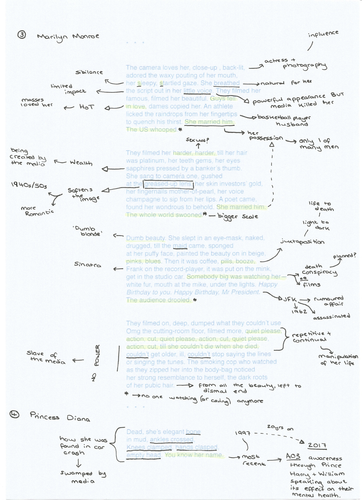 ③ Marilyn Monroe
influence
The camera loves her, close-up, back-lit,
adored the waxy pouting of her mouth,
her sleepy, startled gaze. She breathed
the script out in her little voice. They filmed her
famous, filmed her beautiful. Guys fell
in love, dames copied her. An athlete
licked the raindrops from her fingertips
to quench his thirst. She married him.
The US whooped.
actress + photography
sibilance
natural for her
limited impact
powerful appearance But media killed her
masses loved her
HoT
basketball player husband
her possession
only 1 of many men
sexual?
They filmed her harder, harder, till her hair
was platinum, her teeth gems, her eyes
sapphires pressed by a banker's thumb.
She sang to camera one, gushed
at the greased-up lens, her skin investors' gold,
her fingernails mother-of-pearl, her voice
champagne to sip from her lips. A poet came,
found her wondrous to behold. She married him.
The whole world swooned.
being created by the media
Wealth
1940s/50s
Softens the image
more Romantic
bigger scale
life to death
light to dark
juxtaposition
'Dumb blonde'
Dumb beauty. She slept in an eye-mask, naked,
drugged, till the maid came, sponged
at her puffy face, painted the beauty on in beige,
pinks, blues. Then it was coffee, pills, booze,
Frank on the record-player, it was put on the mink,
get in the studio car. Somebody big was watching her –
white fur, mouth at the mike, under the lights. Happy
Birthday to you. Happy Birthday, Mr President.
The audience drooled.
Sinatra
death conspiracy
films
JFK
rumoured affair
1962
assassinated
They filmed on, deep, dumped what they couldn't use
on the cutting-room floor, filmed more, quiet please,
action, cut, quiet please, action, cut, quiet please,
action, cut, till she couldn't die when she died,
couldn't get older, ill, couldn't stop saying the lines
or singing the tunes. The smoking cop who watched
as they zipped her into the body-bag noticed
her strong resemblance to herself, the dark roots
of her pubic hair.
repetitive + continual
manipulation of her life
Slave of the media
NO POWER
from all the beauty, left to dismal end
no one watching (or caring) anymore
④ Princess Diana
Dead, she's elegant bone
in mud, ankles crossed,
knees clamped, hands clasped,
empty head. You know her name.
how she was found in car crash
swamped by media
1997
20yrs on
2017
most recent
AO5 awareness through Prince Harry + William speaking about its effect on their mental health.